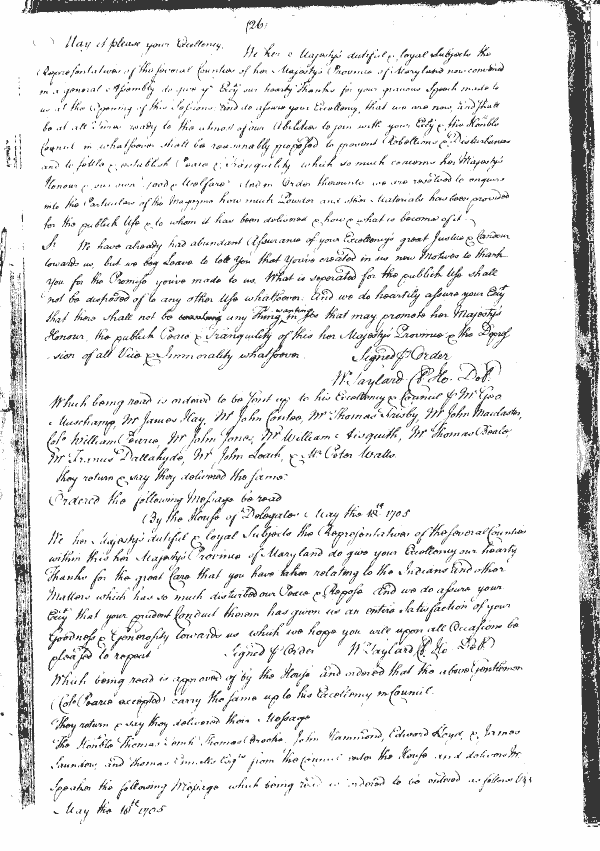 (26)
May it please your Excellency. We her Majesty's dutiful & loyal Subjects the
Representatives of the several Counties of her Majesty's Province of Maryland now convened
in a general Assembly do give yr Excy our hearty Thanks for your gracious Speech made to
us at the Opening of this Sessions, and do assure your Excellency, that we are now, and shall
be at all Times ready to the utmost of our Abilities to join with your Excy & the Honble
Council in whatsoever shall be reasonably proposed to prevent Rebellions & Disturbances
and to settle & establish Peace & Tranquility which so much concerns her Majesty's
Honour & our own good & Welfare. And in Order thereunto we are resolved to enquire
into the Particulars of the Magazine how much Powder and other Materials has been provided
for the publick Use & to whom it has been delivered & how & what is become of it
We have already had abundant Assurance of your Excellency's great Justice & Candour
towards us, but we beg Leave to tell You that You've created in us new Motives to thank
You for the Promise you've made to us. What is seperated for the publick Use shall
not be disposed of to any other Use whatsoever. And we do heartily assure your Excy
that there shall not be any Thing wanting in Us that may promote her Majesty's
Honour, the publick Peace & Tranquility of this her Majesty's Province & the Depres
sion of all Vice & Immorality whatsoever. Signed p Order
W Taylard Cl Ho. Del.
Which being read is ordered to be sent up to his Excellency & Council by Mr Geo
Muschamp, Mr James Hay, Mr John Contee, Mr Thomas Frisby, Mr John Macclaster,
Colo William Pearce, Mr John Jones, Mr William Aisquith, Mr Thomas Beale,
Mr Francis Dallahyde, Mr John Leach, & Mr Peter Watts.
They return & say they delivered the same.
Ordered the following Message be read
(By the House of Delegates May the 18th 1705
We her Majesty's dutiful & loyal Subjects the Representatives of the several Counties
within this her Majesty's Province of Maryland do give your Excellency our hearty
Thanks for the great Care that you have taken relating to the Indians and other
Matters which has so much disturbed our Peace & Repose. And we do assure your
Excy that your prudent Conduct therein has given us an entire Satisfaction of your
Goodness & Generosity towards us, which we hope you will upon all Occasions be
pleased to repeat Signed p Order W Taylard Cl Ho. Del.
Which being read is approved of by the House and ordered that the above Gentlemen
(Colo Pearce excepted) carry the same up to his Excellency in Council.
They return & say they delivered their Message
The Honble Thomas Thomas Brooke, John Hammond, Edward Lloyd, & James
Saunders, and Thomas Ennalls Esqrs from the Council enter the House and delivers Mr
Speaker the following Message which being read is ordered to be entered as follows
May the 18th 1705